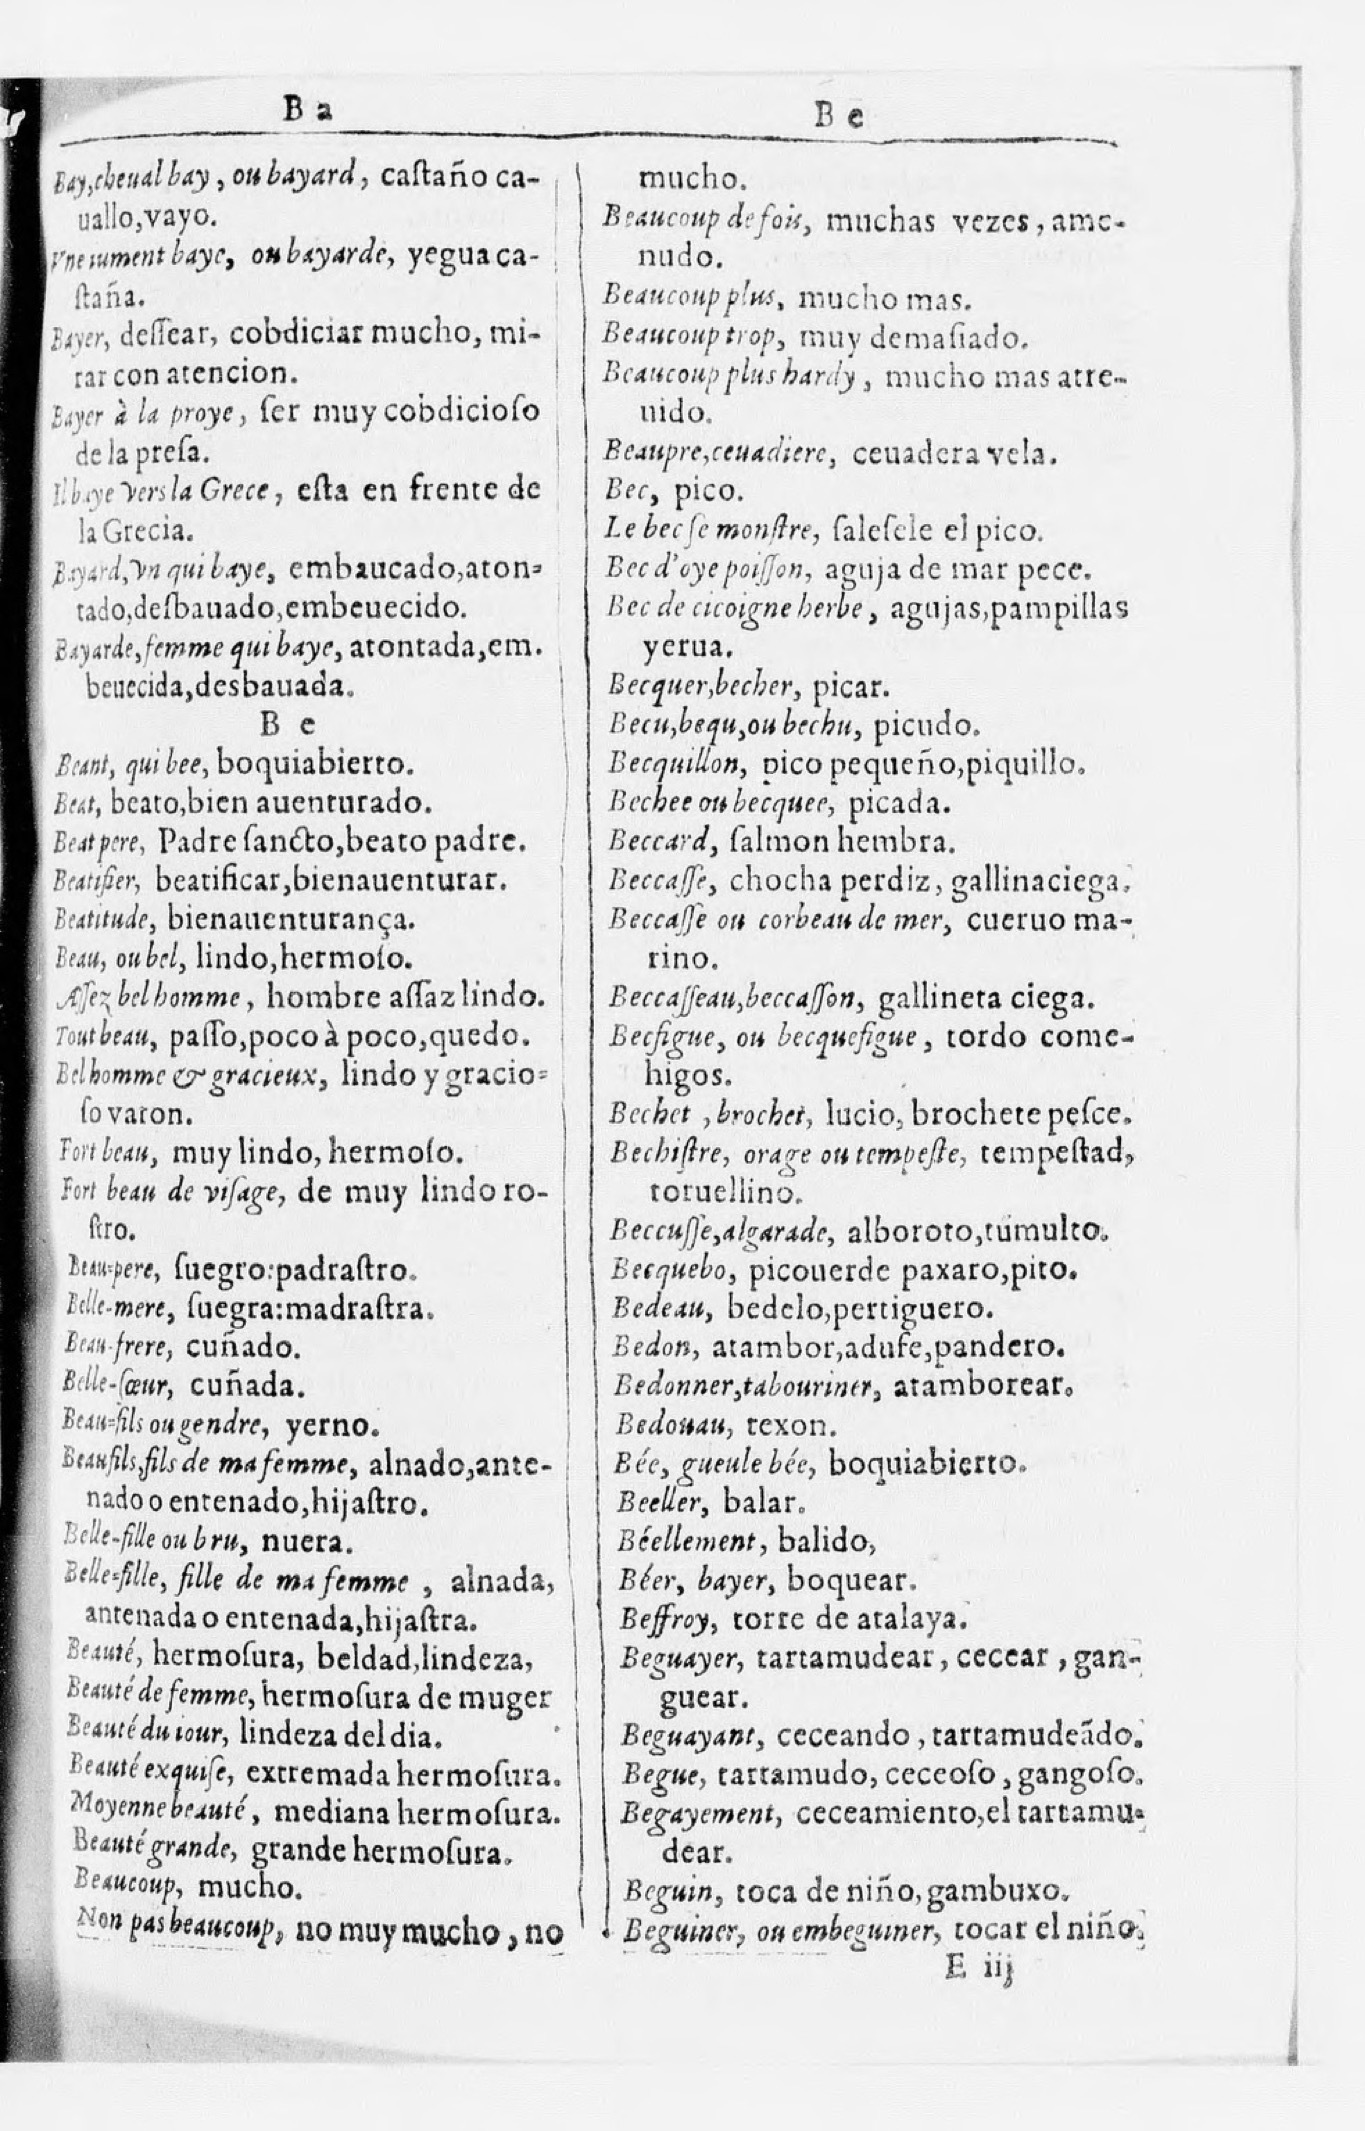 B a
Bay,cheual bay, ou bayard, caſtaño ca-
uallo,vayo.
Vne iument baye, ou bayarde, yegua ca-
ſtaña.
Bayer, deſſear, cobdiciar mucho, mi-
rar con atencion.
Bayer à la proye, ſer muy cobdicioſo
de la preſa.
Il baye vers la Grece, eſta en frente de
la Grecia.
Bayard,vn qui baye, embaucado,aton=
tado,deſbauado,embeuecido.
Bayarde,femme qui baye, atontada,em.
beuecida,desbauada.
B e
Beant, qui bee, boquiabierto.
Beat, beato,bien auenturado.
Beat pere, Padre ſancto,beato padre.
Beatifier, beatificar,bienauenturar.
Beatitude, bienauenturança.
Beau, ou bel, lindo,hermoſo.
Aſſez bel homme, hombre aſſaz lindo.
Tout beau, paſſo,poco à poco,quedo.
Bel homme & gracieux, lindo y gracio=
ſo varon.
Fort beau, muy lindo, hermoſo.
Fort beau de viſage, de muy lindo ro-
ſtro.
Beau=pere, ſuegro:padraſtro.
Belle-mere, ſuegra:madraſtra.
Beau-frere, cuñado.
Belle-ſœur, cuñada.
Beau=fils ou gendre, yerno.
Beaufils,fils de ma femme, alnado,ante-
nado o entenado,hijaſtro.
Belle-fille ou bru, nuera.
Belle=fille, fille de ma femme, alnada,
antenada o entenada,hijaſtra.
Beauté, hermoſura, beldad,lindeza,
Beauté de femme, hermoſura de muger
Beauté du iour, lindeza del dia.
Beauté exquiſe, extremada hermoſura.
Moyenne beauté, mediana hermoſura.
Beauté grande, grande hermoſura.
Beaucoup, mucho.
Non pas beaucoup, no muy mucho, no
B e
mucho.
Beaucoup de fois, muchas vezes, ame-
nudo.
Beaucoup plus, mucho mas.
Beaucoup trop, muy demaſiado.
Beaucoup plus hardy, mucho mas atre-
uido.
Beaupre,ceuadiere, ceuadera vela.
Bec, pico.
Le bec ſe monſtre, ſaleſele el pico.
Bec d'oye poiſſon, aguja de mar pece.
Bec de cicoigne herbe, agujas,pampillas
yerua.
Becquer,becher, picar.
Becu,bequ,ou bechu, picudo.
Becquillon, pico pequeño,piquillo.
Bechee ou becquee, picada.
Beccard, ſalmon hembra.
Beccaſſe, chocha perdiz, gallinaciega.
Beccaſſe ou corbeau de mer, cueruo ma-
rino.
Beccaſſeau,beccaſſon, gallineta ciega.
Becfigue, ou becquefigue, tordo come-
higos.
Bechet ,brochet, lucio, brochete peſce.
Bechiſtre, orage ou tempeſte, tempeſtad,
toruellino.
Beccuſſe,algarade, alboroto,tumulto.
Becquebo, picouerde paxaro,pito.
Bedeau, bedelo,pertiguero.
Bedon, atambor,adufe,pandero.
Bedonner,tabouriner, atamborear.
Bedouau, texon.
Bée, gueule bée, boquiabierto.
Beeller, balar.
Béellement, balido,
Béer, bayer, boquear.
Beffroy, torre de atalaya.
Beguayer, tartamudear, cecear, gan-
guear.
Beguayant, ceceando, tartamudeãdo.
Begue, tartamudo, ceceoſo, gangoſo.
Begayement, ceceamiento,el tartamu=
dear.
Beguin, toca de niño,gambuxo.
Beguiner, ou embeguiner, tocar el niño.
E iij